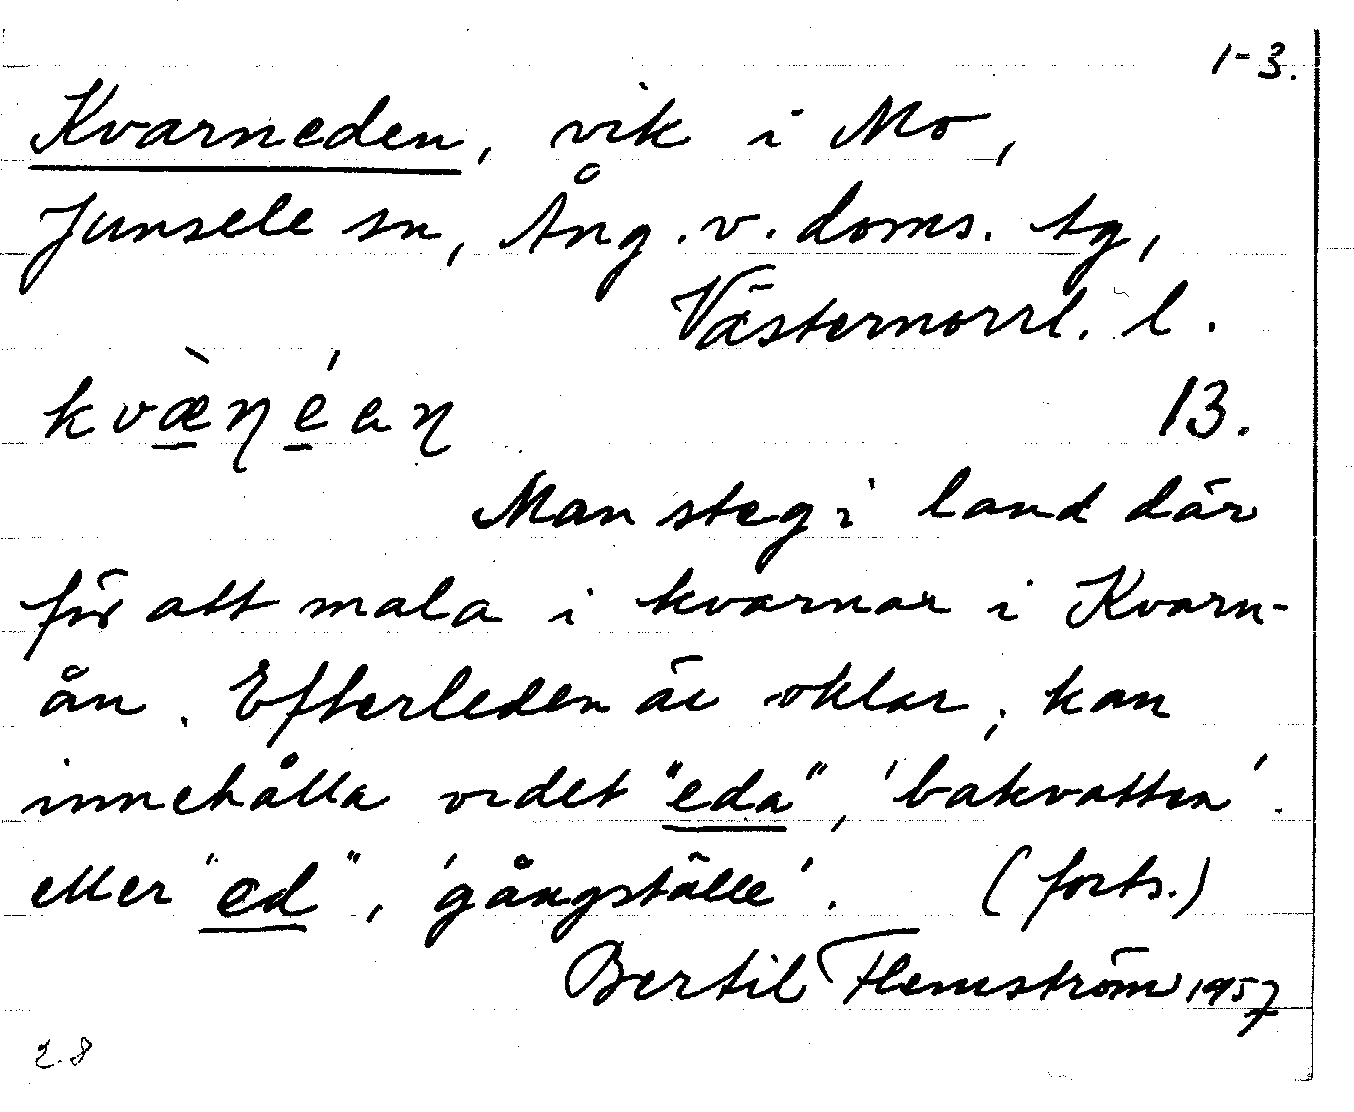 1-3.
Kvarneden, vik i Mo,
Junsele sn, Ång. v. doms. tg,
Västernorrl. l.
kvæ̀ŋéaŋ 13.
Man steg i land där
för att mala i kvarnar i Kvarn-
ån. Efterleden är oklar; kan
innehålla ordet "eda", 'bakvatten'.
eller "ed", 'gångställe'. (forts.)
Bertil Flemström 1957
28